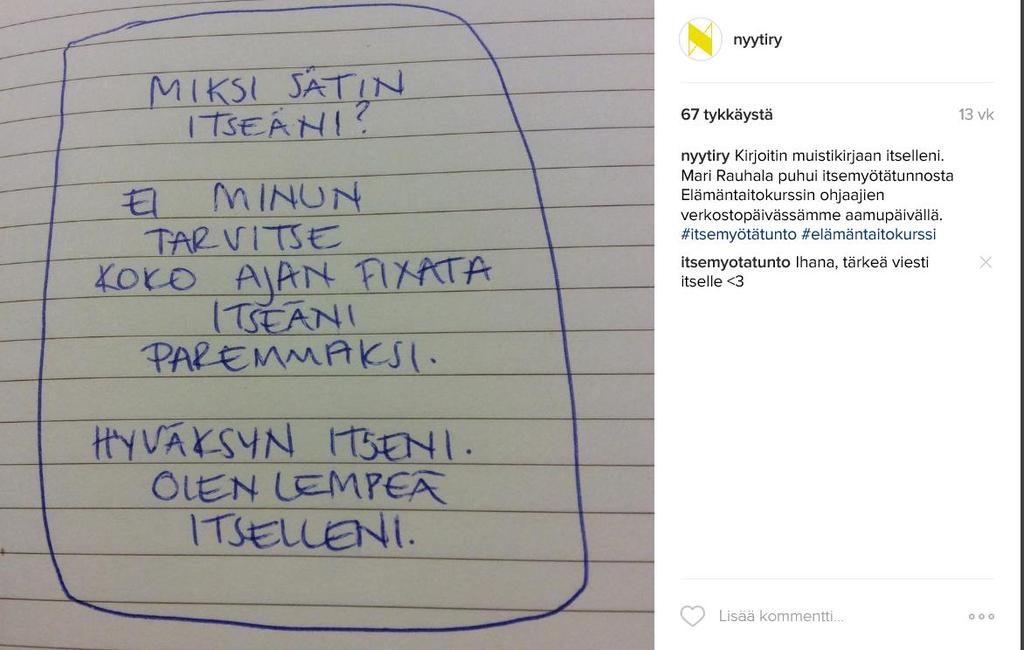 MIKSI SÄTIN
ITSEÄNI?
EI MINUN
TARVITSE
KOKO AJAN FIXATA
ITSEÄNI
PAREMMAKSI.
HYVÄKSYN ITSENI.
OLEN LEMPEÄ
ITSELLENI.
nyytiry
67 tykkäystä 13 vk
nyytiry Kirjoitin muistikirjaan itselleni.
Mari Rauhala puhui itsemyötätunnosta
Elämäntaitokurssin ohjaajien
verkostopäivässämme aamupäivällä.
#itsemyötätunto #elämäntaitokurssi
itsemyotatunto Ihana, tärkeä viesti
itselle <3
Lisää kommentti...